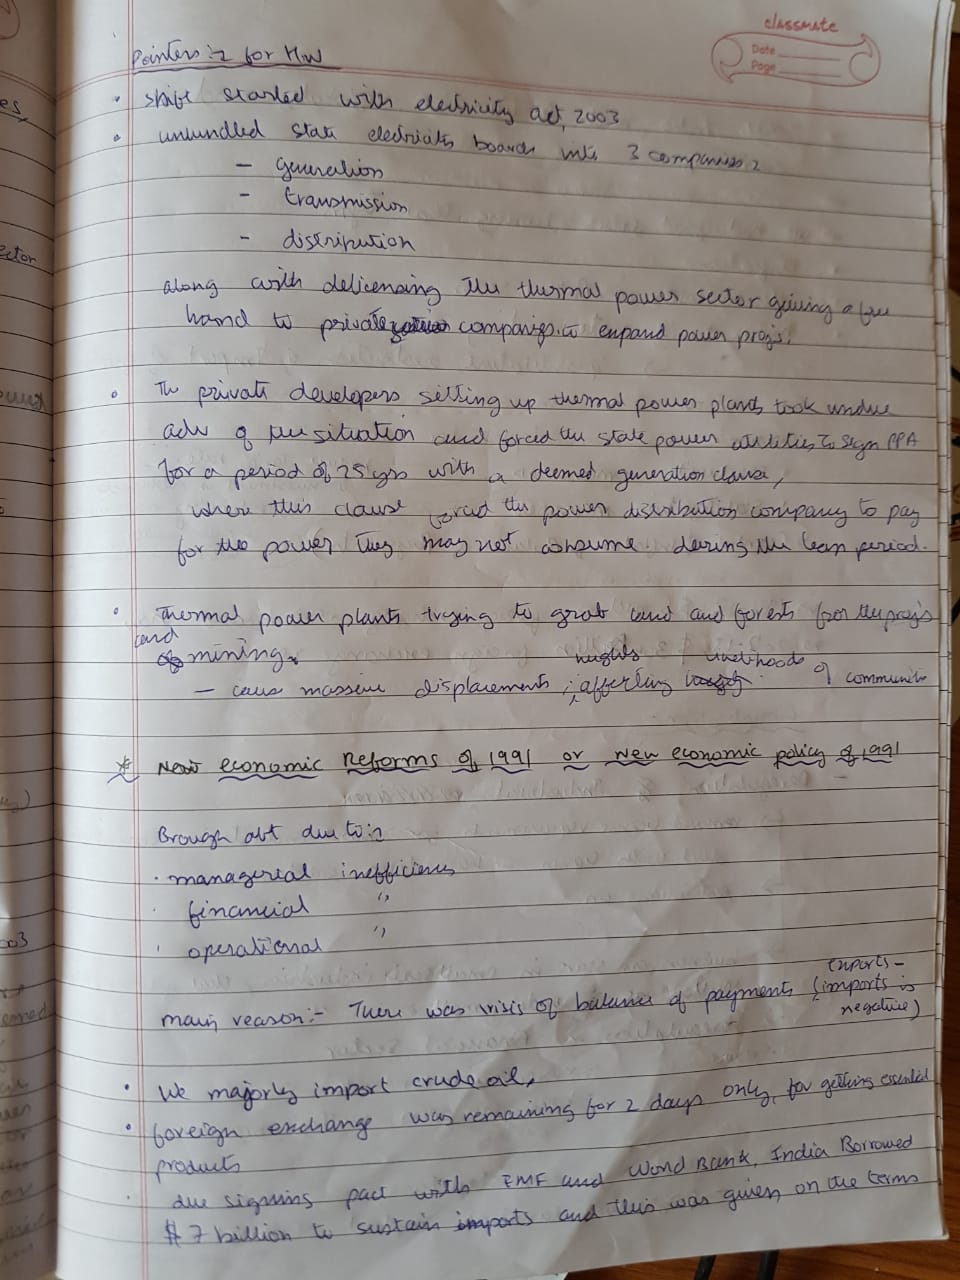 classmate
Date
Page
Pointers :- for HW
• shift started with electricity act, 2003
• unbundled state electricity boards into 3 companies :
- generation
- transmission
- distribution
along with delicensing the thermal power sector giving a free
hand to private companies to expand power projs.
• The private developers setting up thermal power plants took undue
adv of the situation and forced the state power utilities to sign PPA
for a period of 25 yrs with a deemed generation clause,
where this clause forced the power distribution company to pay
for the power they may not consume during the lean period.
• Thermal power plants trying to grab land and forests for the projs
and
mining.
rights / livelihoods
- cause massive displacements, affecting of communities
* New economic Reforms of 1991 or new economic policy of 1991
Brough abt due to :-
• managerial inefficiences
• financial "
• operational "
exports -
main reason :- There was crisis of balance of payments (imports is
negative)
• We majorly import crude oil,
• foreign exchange was remaining for 2 days only, for getting essential
products
• due signing pact with IMF and World Bank, India Borrowed
$ 7 billion to sustain imports and this was given on the terms